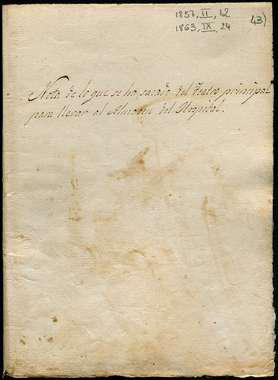 1857, II, 12
1863, IX, 24
43)
Nota de lo que se ha sacado del Teatro principal
para llevar al Almacen del Hospital.